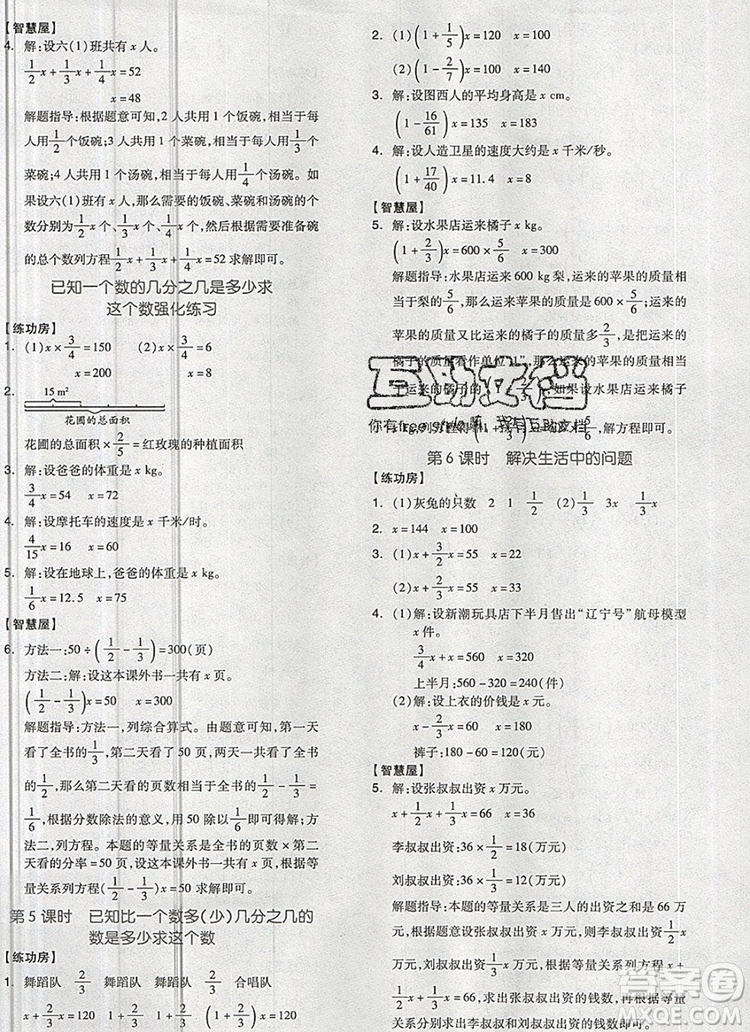 【智慧屋】
4. 解:设六(1)班共有 x 人。
1/2x+1/3x+1/4x=52
x=48
解题指导:根据题意可知,2 人共用 1 个饭碗,相当于每人用 1/2 个饭碗;3 人共用 1 个菜碗,相当于每人用 1/3 个
菜碗;4 人共用 1 个汤碗,相当于每人用 1/4 个汤碗。如
果设六(1)班共有 x 人,那么需要饭碗、菜碗和汤碗的个
数分别为 1/2x 个、1/3x 个和 1/4x 个,然后根据需要准备碗
的总个数列方程 1/2x+1/3x+1/4x=52 求解即可。
已知一个数的几分之几是多少求
这个数强化练习
【练功房】
1. (1)x×3/4=150 (2)x×3/4=6
x=200 x=8
2. 15 m²
花圃的总面积
花圃的总面积×2/5=红玫瑰的种植面积
3. 解:设爸爸的体重是 x kg。
3/4x=54 x=72
4. 解:设摩托车的速度是 x 千米/时。
4/15x=16 x=60
5. 解:设在地球上,爸爸的体重是 x kg。
1/6x=12.5 x=75
【智慧屋】
6. 方法一:50÷(1/2-1/3)=300(页)
方法二:解:设这本课外书一共有 x 页。
(1/2-1/3)x=50 x=300
解题指导:方法一,列综合算式。由题意可知,第一天
看了全书的 1/3,第二天看了 50 页,两天一共看了全书
的 1/2,那么第二天看的 50 页占全书总页数的 1/2-1/3=
1/6,根据分数除法的意义,用 50 除以 1/6 求解即可。方法
二,列方程。本题的等量关系是全书的总页数×第二
天看的分率=50,设这本课外书一共有 x 页,根据等
量关系列方程(1/2-1/3)x=50 求解即可。
第 5 课时 已知比一个数多(少)几分之几的
数是多少求这个数
【练功房】
1. 舞蹈队 2/3 舞蹈队 舞蹈队 2/3 合唱队
x+2/3x=120 (1+2/3)x=120
2. (1)(1+1/5)x=120 x=100
(2)(1-2/7)x=100 x=140
3. 解:设图西人的平均身高是 x cm。
(1-16/61)x=135 x=183
4. 解:设人造卫星的速度大约是 x 千米/秒。
(1+17/40)x=11.4 x=8
【智慧屋】
5. 解:设水果店运来橘子 x kg。
(1+2/3)x=600×5/6 x=300
解题指导:水果店运来 600 kg 梨,运来的苹果的质量相
当于梨的 5/6,那么运来苹果的质量为(600×5/6)kg;运来
苹果的质量又比运来的橘子的质量多 2/3,也是把运来
橘子的质量看作单位“1”,那么运来的苹果的质量
相当于运来的橘子的质量的(1+2/3)。如果设水果店运来橘子
x kg,列方程得(1+2/3)x=600×5/6,解方程即可。
互助文档
你有free style嘛,我有互助文档
第 6 课时 解决生活中的问题
【练功房】
1. (1)灰兔的只数 2 1 1/2 (2)2 1/3
2. x=144 x=100
3. (1)x+3/2x=55 x=22
(2)x+2/3x=55 x=33
4. (1)解:设新潮玩具店下半月售出“辽宁号”航母模型
x 件。
3/4x+x=560 x=320
上半月:560-320=240(件)
(2)解:设上衣的价钱是 x 元。
x-2/3x=60 x=180
裤子:180-60=120(元)
【智慧屋】
5. 解:设张叔叔出资 x 万元。
x+1/2x+1/3x=66 x=36
李叔叔出资:36×1/2=18(万元)
刘叔叔出资:36×1/3=12(万元)
解题指导:本题的等量关系是三人的出资之和是 66 万
元,设张叔叔出资 x 万元,那么李叔叔出资 1/2x 万元,刘
叔叔出资 1/3x 万元,根据等量关系列方程 x+1/2x+
1/3x=66,求解即可得张叔叔出资的钱数,再根据李
叔叔、刘叔叔出资与张叔叔出资的钱数关系求李叔
叔、刘叔叔出资的钱数即可。
答案圈
MXQE.COM